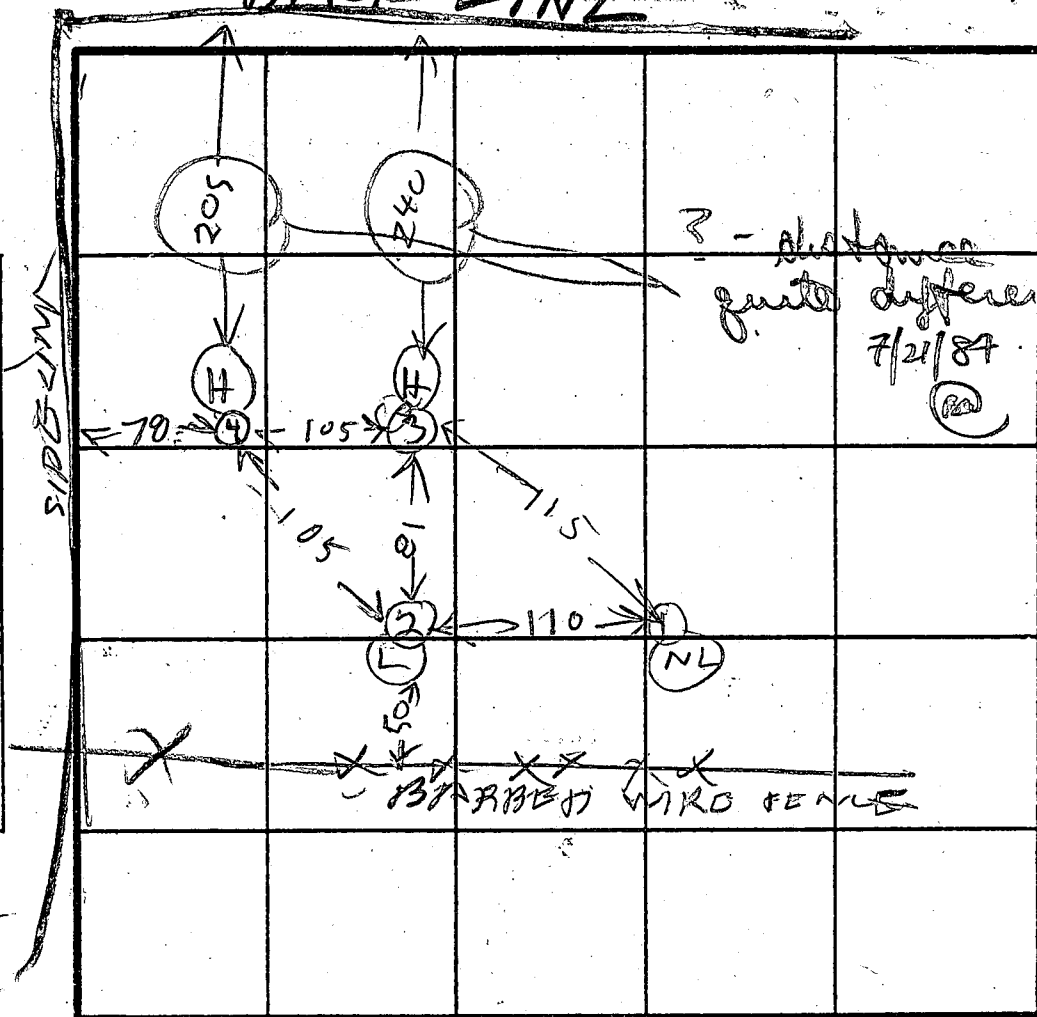 LINE
205
240
? - distance
quite differen
7/21/84
H
H
78
4
105
3
105
81
115
2
110
1
L
NL
50
BARBED WIRE FENCE